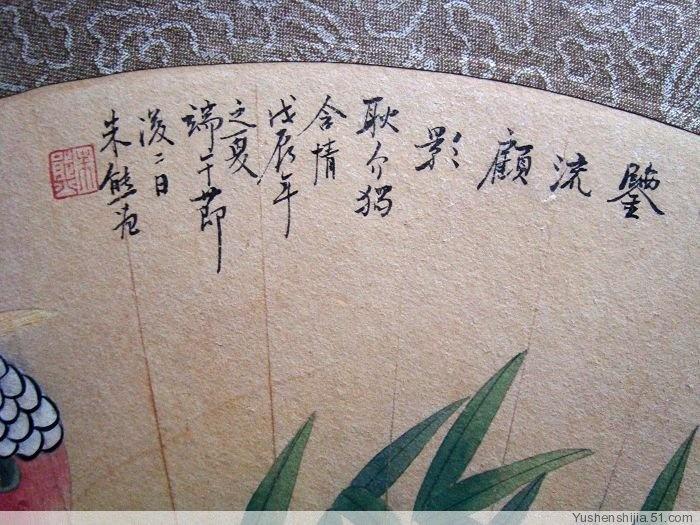 鑒
流
顧
影
耿介獨
含情
戊辰年
之夏
端午節
後二日
朱熊
Yushenshijia.51.com